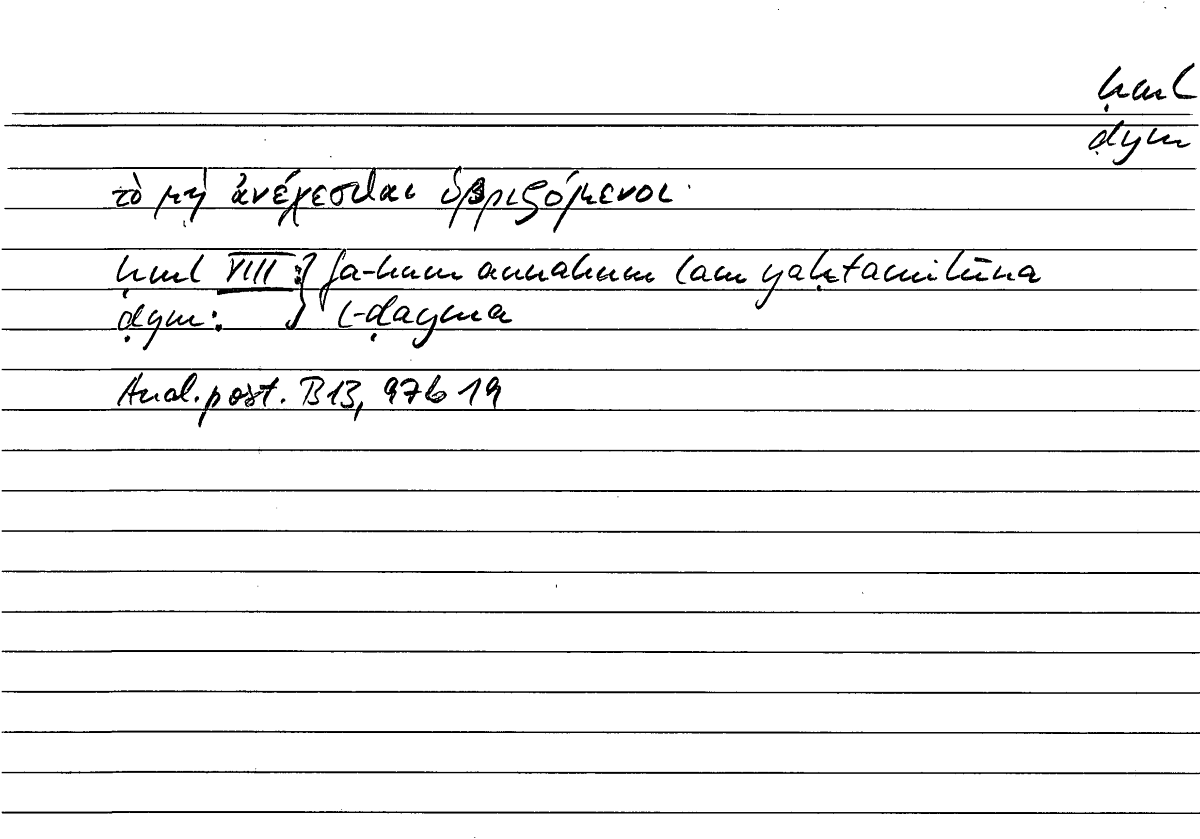 ḥml
ḍym
τὸ μὴ ἀνέχεσθαι ὑβριζόμενοι.
ḥml VIII :} fa-hum annahum lam yaḥtamilūna
ḍym: } l-ḍayma
Anal. post. B13, 97b 19